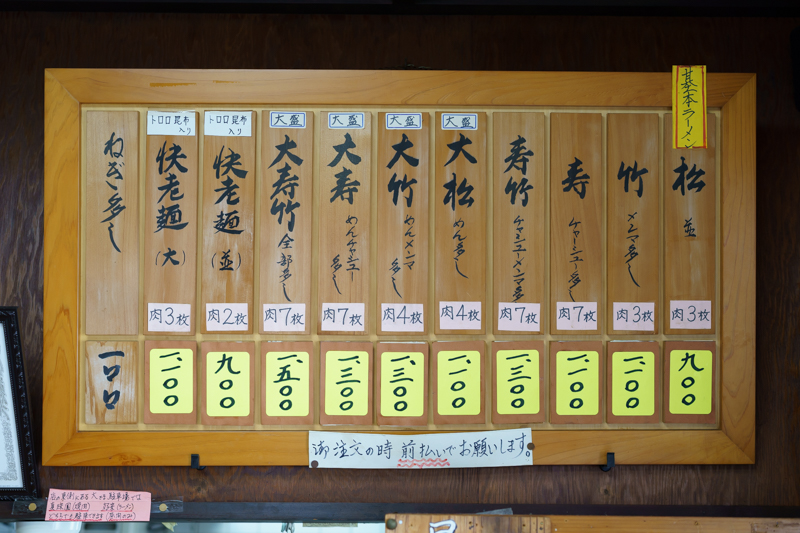 基本ラーメン
松 並
肉3枚
九〇〇
竹 メンマ多し
肉3枚
一、一〇〇
寿 チャーシュー多し
肉7枚
一、一〇〇
寿竹 チャシューメンマ多し
肉7枚
一、三〇〇
大盛
大松 めん多し
肉4枚
一、一〇〇
大盛
大竹 めんメンマ多し
肉4枚
一、三〇〇
大盛
大寿 めんチャシュー多し
肉7枚
一、三〇〇
大盛
大寿竹 全部多し
肉7枚
一、五〇〇
トロロ昆布
入り
快老麺(並)
肉2枚
九〇〇
トロロ昆布
入り
快老麺(大)
肉3枚
一、一〇〇
ねぎ多し
一〇〇
御注文の時 前払いでお願いします。